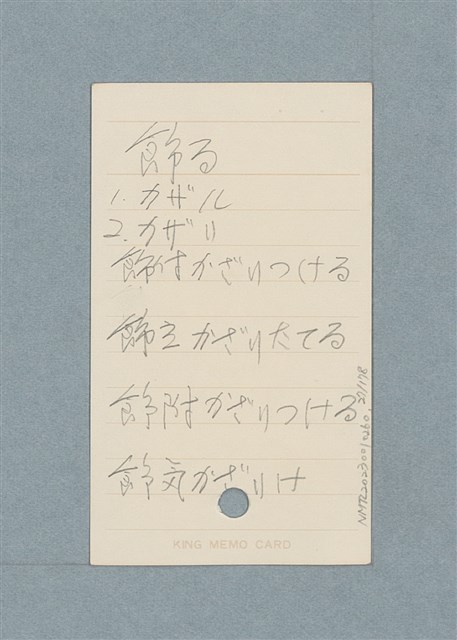 飾る
1. カザル
2. カザリ
飾付かざりつける
飾立かざりたてる
飾附かざりつける
飾気かざりけ
KING MEMO CARD